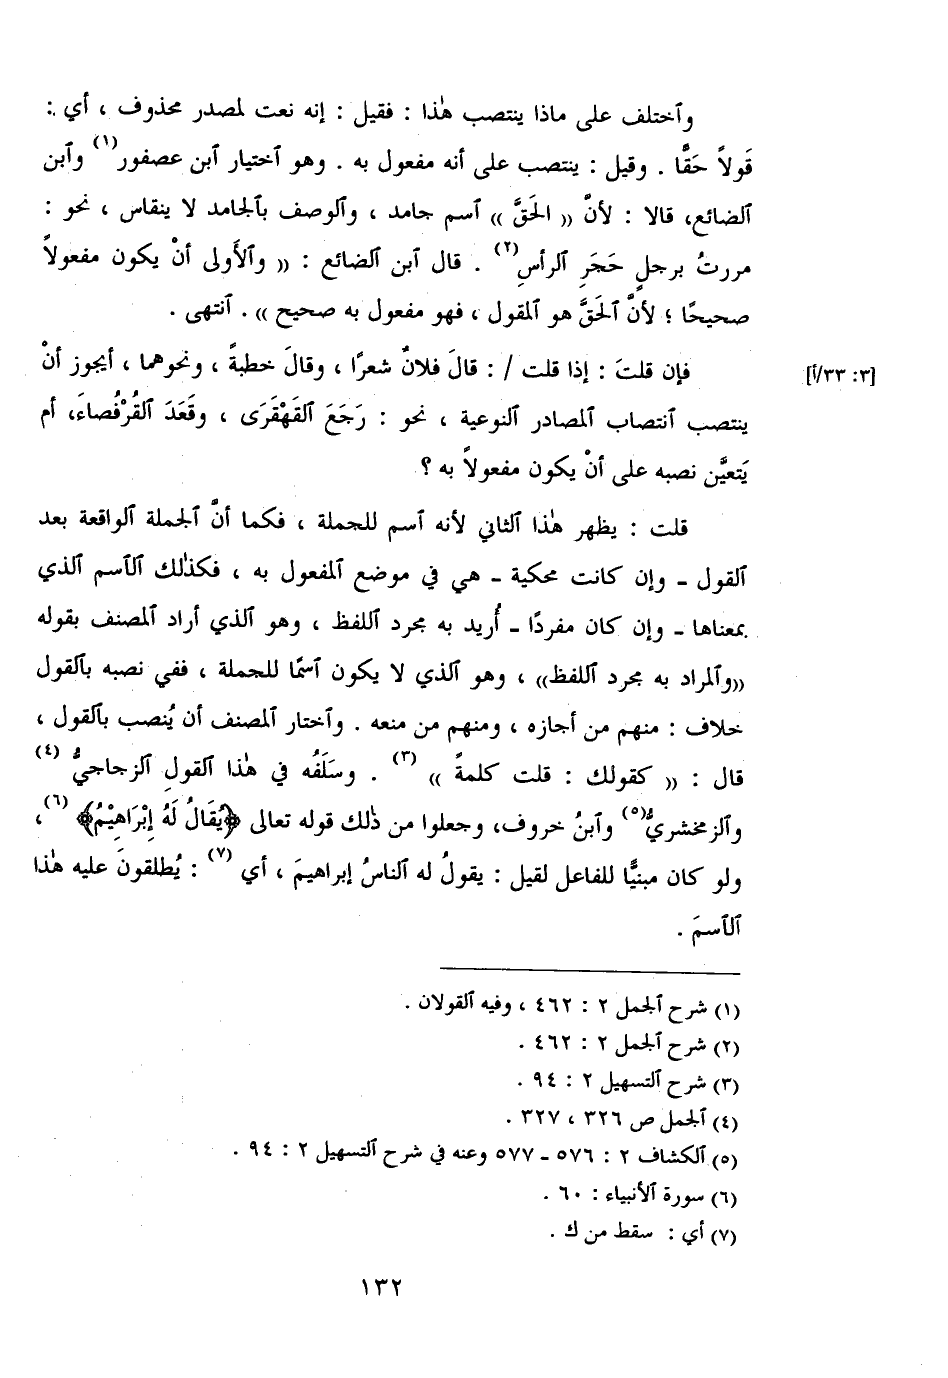 وٱختلف على ماذا ينتصب هٰذا : فقيل : إنه نعت لمصدر محذوف ، أي :
قَولاً حَقًّا . وقيل : ينتصب على أنه مفعول به . وهو ٱختيار ٱبن عصفور(١) وٱبن
ٱلضائع، قالا : لأنَّ (( الحَقَّ )) ٱسم جامد ، وٱلوصف بٱلجامد لا ينقاس ، نحو :
مررتُ برجلٍ حَجَرِ ٱلرأسِ(٢) . قال ٱبن ٱلضائع : (( وٱلأَولى أنْ يكون مفعولاً
صحيحًا ؛ لأنَّ ٱلحَقَّ هو ٱلمقول ، فهو مفعول به صحيح )) . ٱنتهى .
فإن قلتَ : إذا قلت / : قالَ فلانٌ شعرًا ، وقالَ خطبةً ، ونحوهما ، أيجوز أنْ [٣: ٣٣/أ]
ينتصب ٱنتصاب ٱلمصادر ٱلنوعية ، نحو : رَجَعَ ٱلقَهْقَرَى ، وقَعَدَ ٱلقُرْفُصاءَ، أم
يَتعيَّن نصبه على أنْ يكون مفعولاً به ؟
قلت : يظهر هٰذا ٱلثاني لأنه ٱسم للجملة ، فكما أنَّ ٱلجملة ٱلواقعة بعد
ٱلقول ـ وإن كانت محكية ـ هي في موضع ٱلمفعول به ، فكذٰلك ٱلٱسم ٱلذي
بمعناها ـ وإن كان مفردًا ـ أُريد به مجرد ٱللفظ ، وهو ٱلذي أراد ٱلمصنف بقوله
((وٱلمراد به مجرد ٱللفظ)) ، وهو ٱلذي لا يكون ٱسمًا للجملة ، ففي نصبه بٱلقول
خلاف : منهم من أجازه ، ومنهم من منعه . وٱختار ٱلمصنف أن يُنصب بٱلقول ،
قال : (( كقولك : قلت كلمةً )) (٣) . وسَلَفُه في هٰذا ٱلقولِ ٱلزجاجيُّ (٤)
وٱلزمخشريُّ(٥) وٱبنُ خروف، وجعلوا من ذٰلك قوله تعالى ﴿يُقَالُ لَهُ إِبْرَاهِيْمُ﴾ (٦)،
ولو كان مبنيًّا للفاعل لقيل : يقولُ له ٱلناسُ إبراهيمَ ، أي (٧) : يُطلقونَ عليه هٰذا
ٱلٱسمَ .
(١) شرح ٱلجمل ٢ : ٤٦٢ ، وفيه ٱلقولان .
(٢) شرح ٱلجمل ٢ : ٤٦٢ .
(٣) شرح ٱلتسهيل ٢ : ٩٤ .
(٤) ٱلجمل ص ٣٢٦ ، ٣٢٧ .
(٥) ٱلكشاف ٢ : ٥٧٦ ـ ٥٧٧ وعنه في شرح ٱلتسهيل ٢ : ٩٤ .
(٦) سورة ٱلأنبياء : ٦٠ .
(٧) أي : سقط من ك .
١٣٢